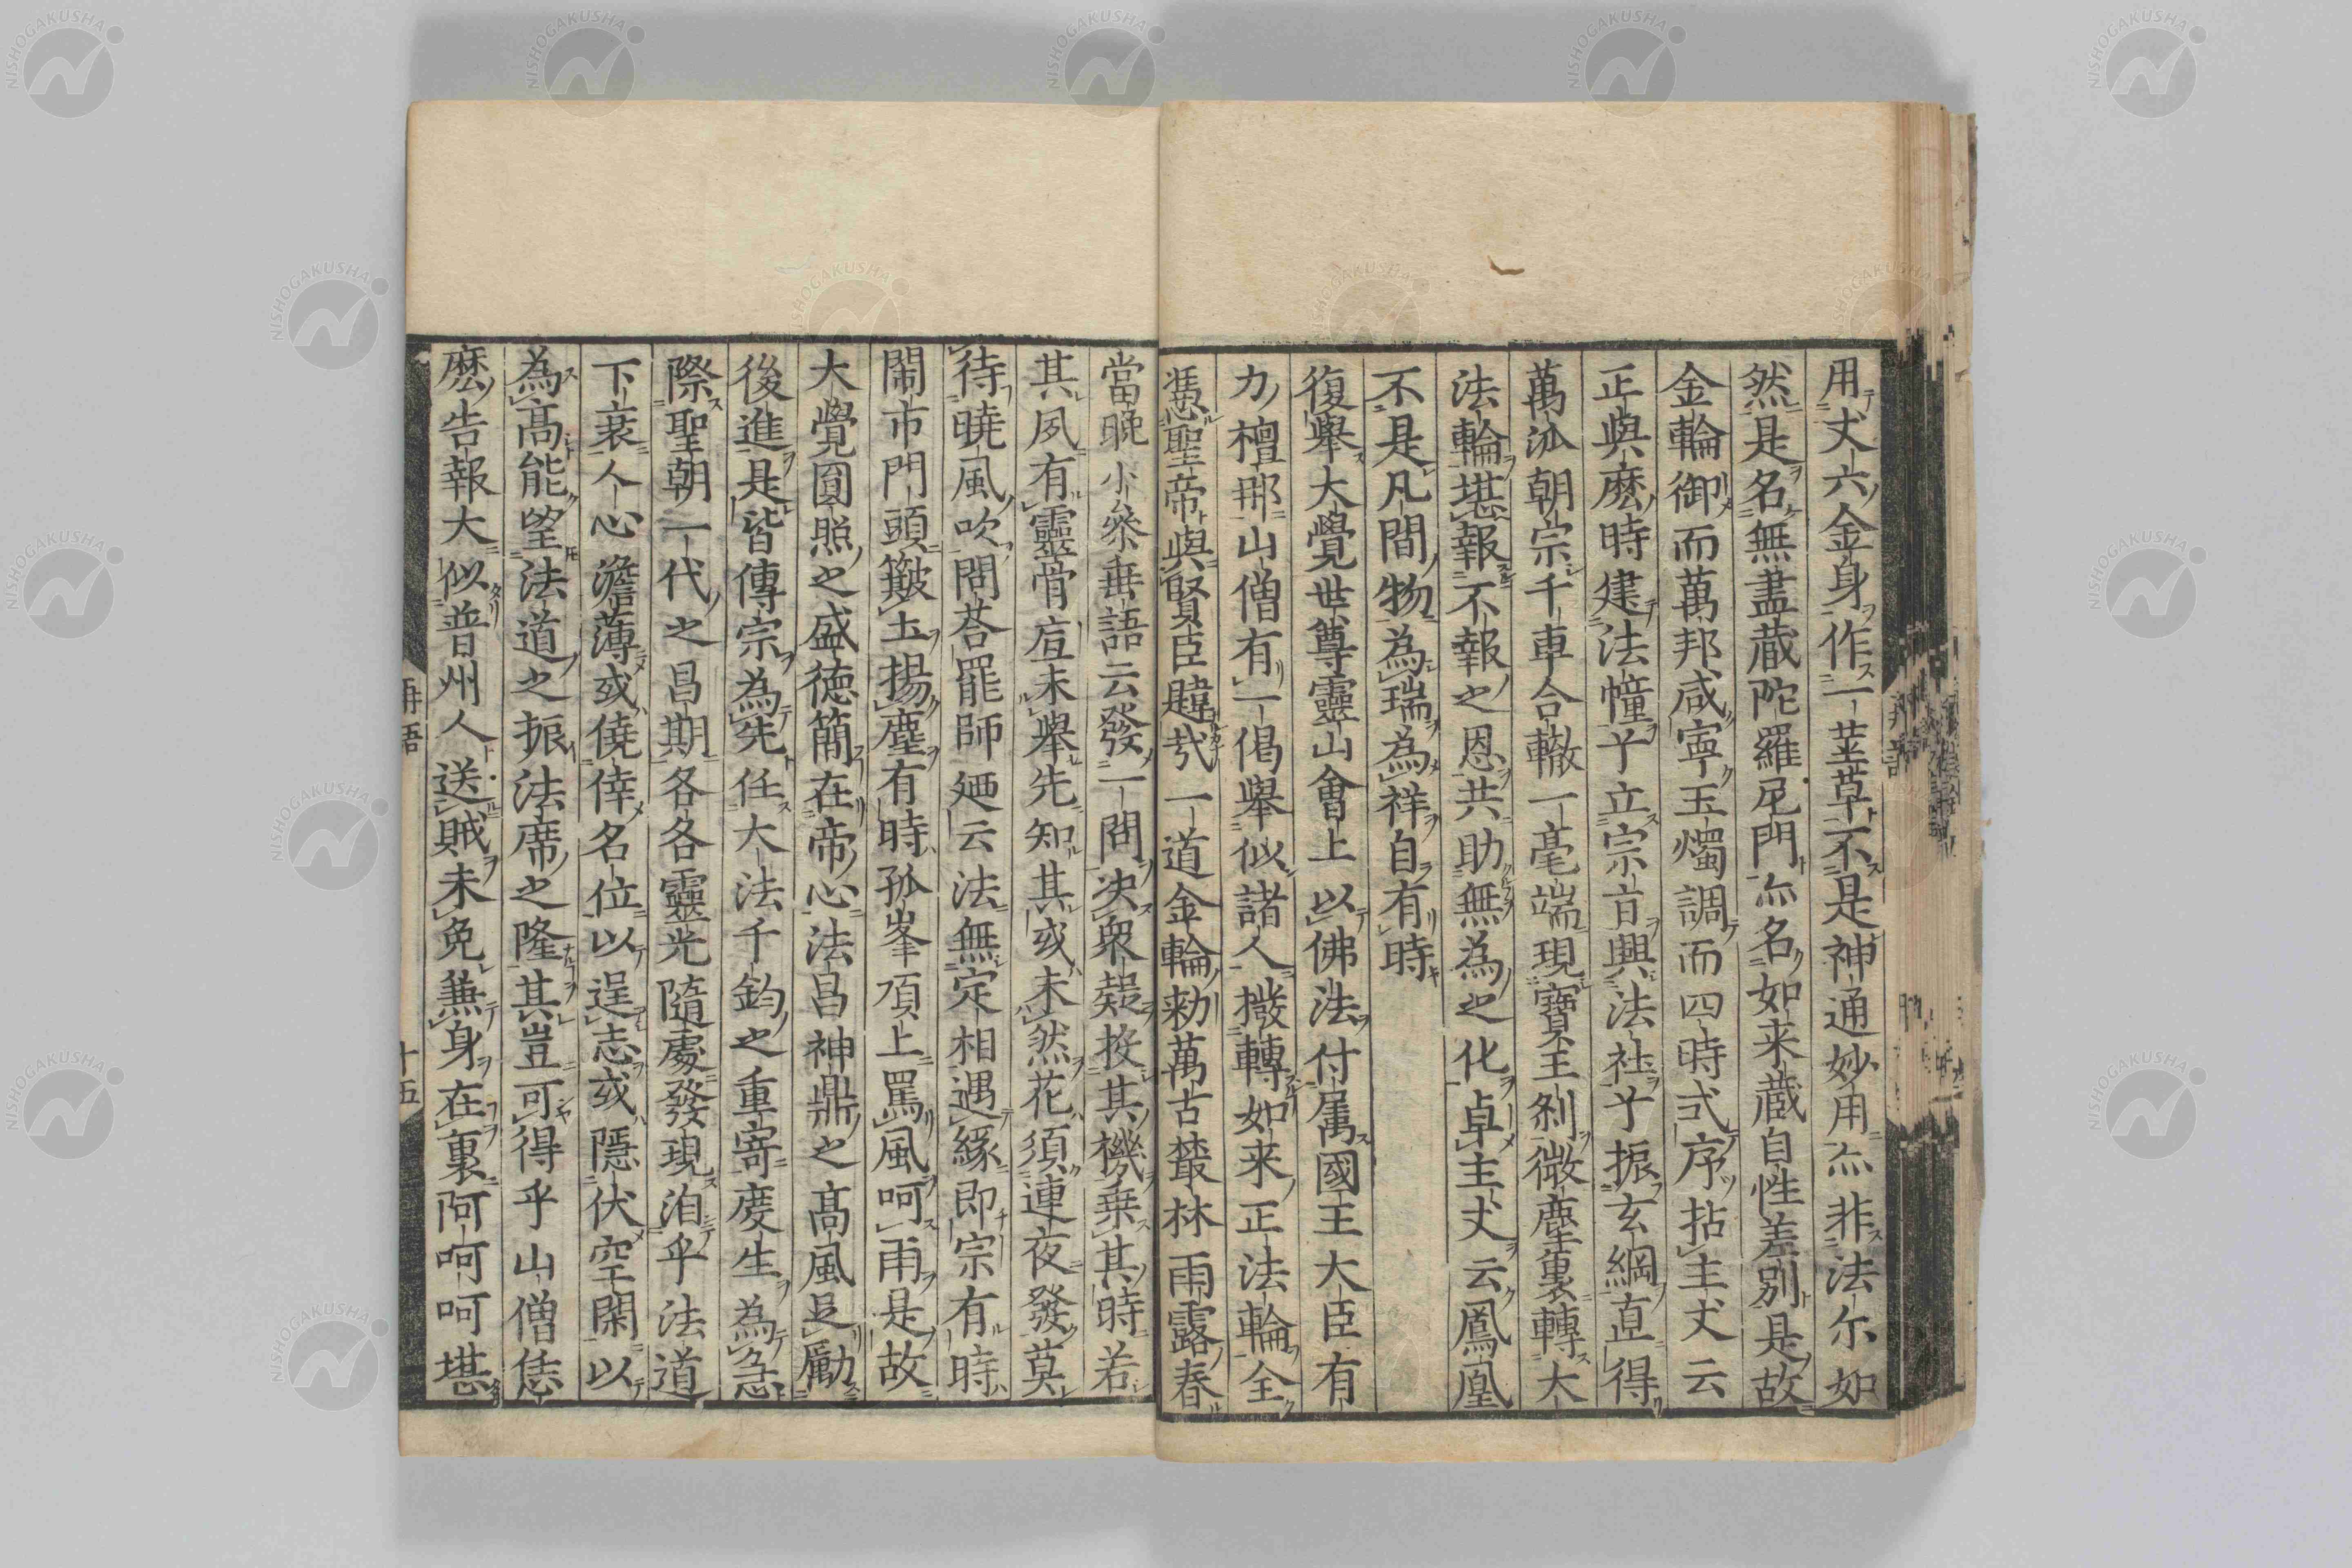 用丈六金身作一莖草不是神通妙用亦非法尓如
然是名無盡藏陀羅尼門亦名如来藏自性差別是故
金輪御而萬邦咸寧玉燭調而四時式序拈主丈云
正與麽時建法幢兮立宗旨興法社兮振玄綱直得
萬派朝宗千車合轍一毫端現寶王刹微塵裏轉大
法輪堪報不報之恩共助無為之化卓主丈云鳳凰
不是凡間物為瑞為祥自有時
復擧大覺世尊靈山會上以佛法付属國王大臣有
力檀那山僧有一偈擧似諸人撥轉如来正法輪全
憑聖帝與賢臣韙哉一道金輪勅萬古叢林雨露春
當晚小參垂語云發一問决衆疑投其機乗其時若
其夙有靈骨底未擧先知其或未然花須連夜發莫
待曉風吹問荅罷師廼云法無定相遇緣即宗有時
閙市門頭簸土揚塵有時孤峯頂上罵風呵雨是故
大覺圓照之盛徳簡在帝心法昌神鼎之髙風足勵
後進是皆傳宗為先任大法千鈞之重寄度生為急
際聖朝一代之昌期各各靈光隨處發現洎乎法道
下衰人心澹薄或僥倖名位以逞志或隱伏空閑以
為髙能望法道之振法席之隆其豈可得乎山僧恁
麽告報大似普州人送賊未免兼身在裏阿呵呵堪
再語
十五
NISHOGAKUSHA